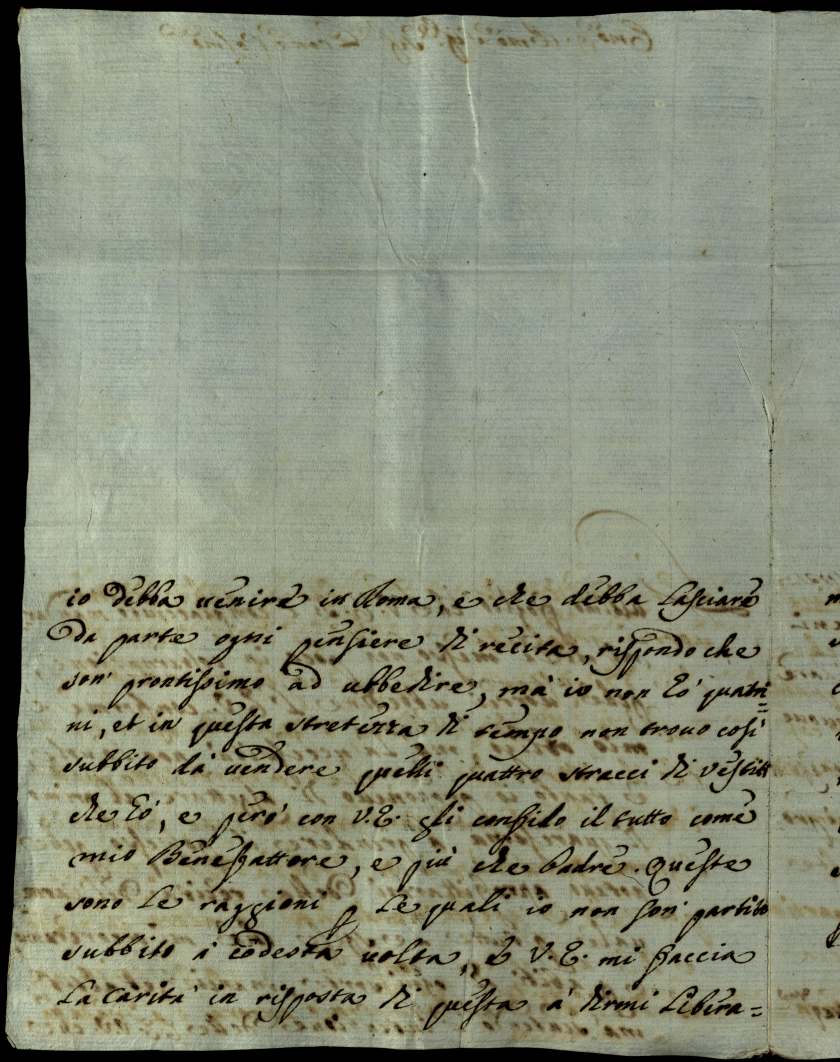 io debba uenire in Roma, e che debba lasciare
da parte ogni pensiere di recita, rispondo che
son' prontissimo ad ubbedire, mà io non hò quatri=
ni, et in questa stretezza di tempo non trouo così
subbito dà uendere quelli quattro stracci di vestiti
che hò, e però con V.E. gli confido il tutto come
mio Benefattore, e più che Padre. Queste
sono le raggioni p le quali io non son' partito
subbito à codesta uolta, e V.E. mi faccia
la carità in risposta di questa à dirmi libera=